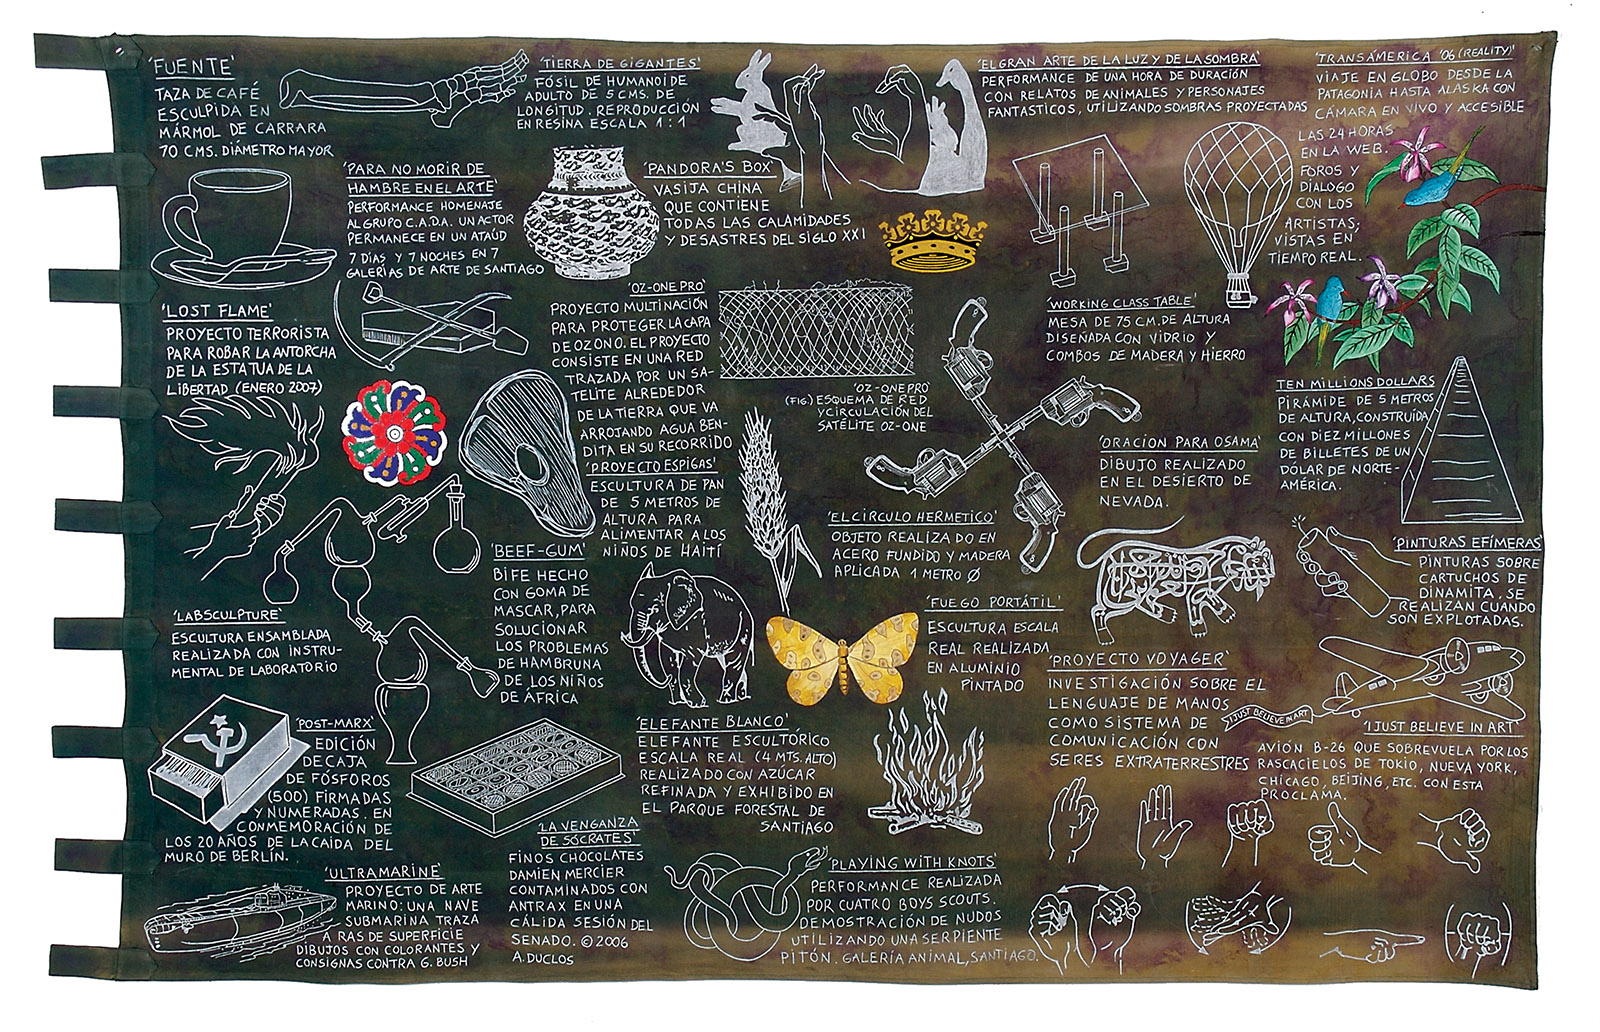 'FUENTE'
TAZA DE CAFÉ
ESCULPIDA EN
MÁRMOL DE CARRARA
70 CMS. DIÁMETRO MAYOR
'TIERRA DE GIGANTES'
FÓSIL DE HUMANOIDE
ADULTO DE 5 CMS. DE
LONGITUD. REPRODUCCIÓN
EN RESINA ESCALA 1:1
'EL GRAN ARTE DE LA LUZ Y DE LA SOMBRA'
PERFORMANCE DE UNA HORA DE DURACIÓN
CON RELATOS DE ANIMALES Y PERSONAJES
FANTASTICOS, UTILIZANDO SOMBRAS PROYECTADAS
'TRANSAMERICA '06 (REALITY)'
VIAJE EN GLOBO DESDE LA
PATAGONIA HASTA ALASKA CON
CÁMARA EN VIVO Y ACCESIBLE
LAS 24 HORAS
EN LA WEB.
FOROS Y
DIALOGO
CON LOS
ARTISTAS;
VISTAS EN
TIEMPO REAL.
'PARA NO MORIR DE
HAMBRE EN EL ARTE'
PERFORMANCE HOMENAJE
AL GRUPO C.A.D.A. UN ACTOR
PERMANECE EN UN ATAÚD
7 DÍAS Y 7 NOCHES EN 7
GALERÍAS DE ARTE DE SANTIAGO
'PANDORA'S BOX'
VASIJA CHINA
QUE CONTIENE
TODAS LAS CALAMIDADES
Y DESASTRES DEL SIGLO XXI
'LOST FLAME'
PROYECTO TERRORISTA
PARA ROBAR LA ANTORCHA
DE LA ESTATUA DE LA
LIBERTAD (ENERO 2007)
'OZ-ONE PRO'
PROYECTO MULTINACIÓN
PARA PROTEGER LA CAPA
DE OZONO. EL PROYECTO
CONSISTE EN UNA RED
TRAZADA POR UN SA-
TELITE ALREDEDOR
DE LA TIERRA QUE VA
ARROJANDO AGUA BEN-
DITA EN SU RECORRIDO
'OZ-ONE PRO'
(FIG.) ESQUEMA DE RED
Y CIRCULACIÓN DEL
SATÉLITE OZ-ONE
'WORKING CLASS TABLE'
MESA DE 75 CM. DE ALTURA
DISEÑADA CON VIDRIO Y
COMBOS DE MADERA Y HIERRO
TEN MILLIONS DOLLARS
PIRÁMIDE DE 5 METROS
DE ALTURA, CONSTRUIDA
CON DIEZ MILLONES
DE BILLETES DE UN
DÓLAR DE NORTE-
AMÉRICA.
'ORACION PARA OSAMA'
DIBUJO REALIZADO
EN EL DESIERTO DE
NEVADA.
'PROYECTO ESPIGAS'
ESCULTURA DE PAN
DE 5 METROS DE
ALTURA PARA
ALIMENTAR A LOS
NIÑOS DE HAITÍ
'EL CÍRCULO HERMETICO'
OBJETO REALIZADO EN
ACERO FUNDIDO Y MADERA
APLICADA 1 METRO Ø
'PINTURAS EFÍMERAS'
PINTURAS SOBRE
CARTUCHOS DE
DINAMITA, SE
REALIZAN CUANDO
SON EXPLOTADAS.
'BEEF-GUM'
BIFE HECHO
CON GOMA DE
MASCAR, PARA
SOLUCIONAR
LOS PROBLEMAS
DE HAMBRUNA
DE LOS NIÑOS
DE ÁFRICA
'LABSCULPTURE'
ESCULTURA ENSAMBLADA
REALIZADA CON INSTRU-
MENTAL DE LABORATORIO
'FUEGO PORTÁTIL'
ESCULTURA ESCALA
REAL REALIZADA
EN ALUMINIO
PINTADO
'PROYECTO VOYAGER'
INVESTIGACIÓN SOBRE EL
LENGUAJE DE MANOS
COMO SISTEMA DE
COMUNICACIÓN CON
SERES EXTRATERRESTRES
I JUST BELIEVE IN ART
'I JUST BELIEVE IN ART'
AVIÓN B-26 QUE SOBREVUELA POR LOS
RASCACIELOS DE TOKIO, NUEVA YORK,
CHICAGO, BEIJING, ETC. CON ESTA
PROCLAMA.
'POST-MARX'
EDICIÓN
DE CAJA
DE FÓSFOROS
(500) FIRMADAS
Y NUMERADAS. EN
CONMEMORACIÓN DE
LOS 20 AÑOS DE LA CAIDA DEL
MURO DE BERLÍN.
'ELEFANTE BLANCO'
ELEFANTE ESCULTÓRICO
ESCALA REAL (4 MTS. ALTO)
REALIZADO CON AZÚCAR
REFINADA Y EXHIBIDO EN
EL PARQUE FORESTAL DE
SANTIAGO
'LA VENGANZA
DE SÓCRATES'
FINOS CHOCOLATES
DAMIEN MERCIER
CONTAMINADOS CON
ANTRAX EN UNA
CÁLIDA SESIÓN DEL
SENADO. © 2006
A. DUCLOS
'ULTRAMARINE'
PROYECTO DE ARTE
MARINO: UNA NAVE
SUBMARINA TRAZA
A RAS DE SUPERFICIE
DIBUJOS CON COLORANTES Y
CONSIGNAS CONTRA G. BUSH
'PLAYING WITH KNOTS'
PERFORMANCE REALIZADA
POR CUATRO BOYS SCOUTS.
DEMOSTRACIÓN DE NUDOS
UTILIZANDO UNA SERPIENTE
PITÓN. GALERÍA ANIMAL, SANTIAGO.